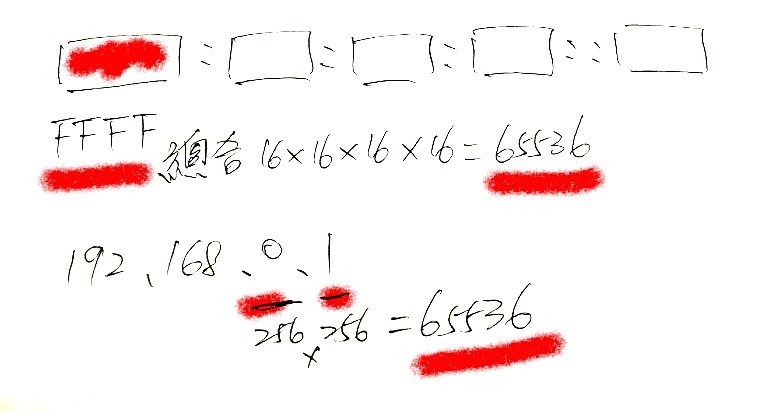 : : : ::
FFFF 總合 16×16×16×16=65536
192、168、0、1
256×256=65536